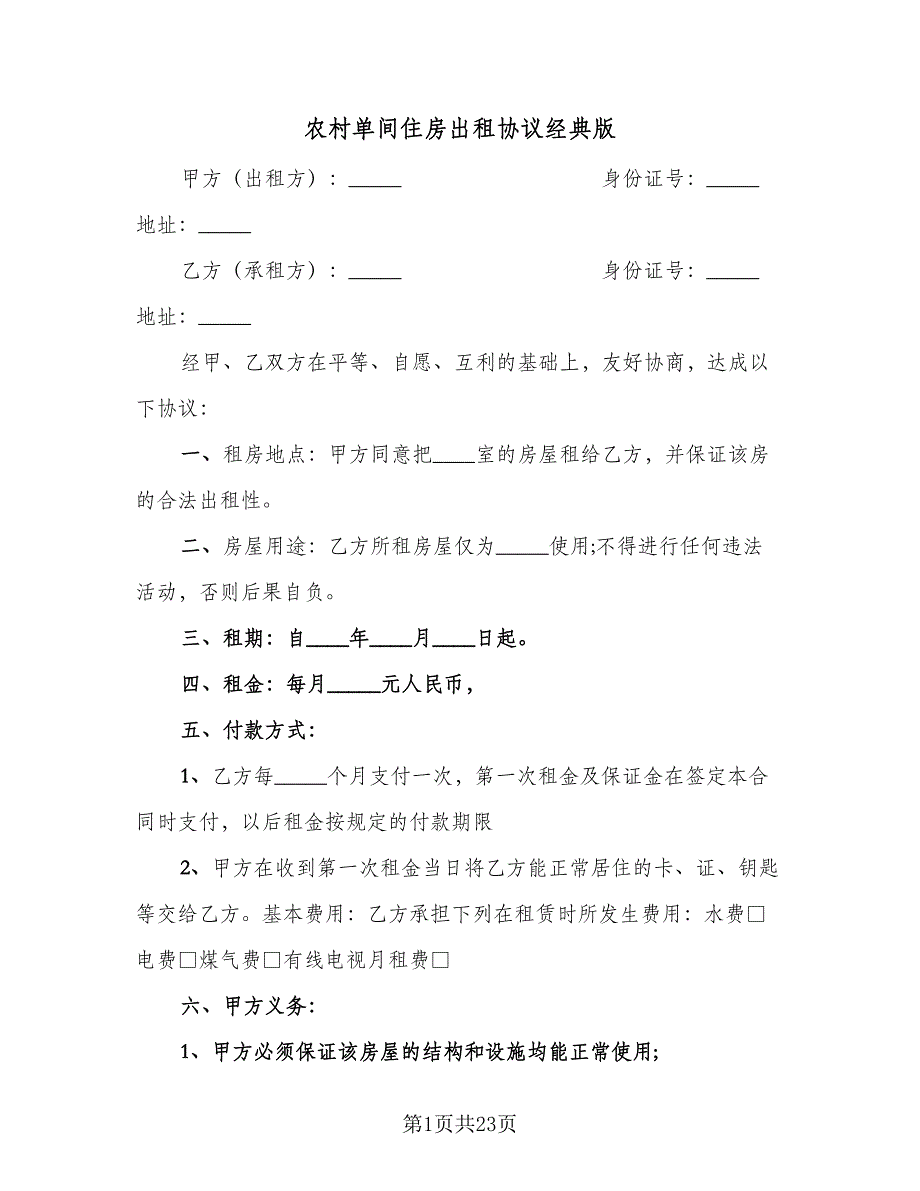 农村单间住房出租协议经典版
甲方（出租方）：_____ 身份证号：_____
地址：_____
乙方（承租方）：_____ 身份证号：_____
地址：_____
经甲、乙双方在平等、自愿、互利的基础上，友好协商，达成以
下协议：
一、租房地点：甲方同意把____室的房屋租给乙方，并保证该房
的合法出租性。
二、房屋用途：乙方所租房屋仅为_____使用;不得进行任何违法
活动，否则后果自负。
三、租期：自____年____月____日起。
四、租金：每月_____元人民币，
五、付款方式：
1、乙方每_____个月支付一次，第一次租金及保证金在签定本合
同时支付，以后租金按规定的付款期限
2、甲方在收到第一次租金当日将乙方能正常居住的卡、证、钥匙
等交给乙方。基本费用：乙方承担下列在租赁时所发生费用：水费□
电费□煤气费□有线电视月租费□
六、甲方义务：
1、甲方必须保证该房屋的结构和设施均能正常使用;
第1页共23页